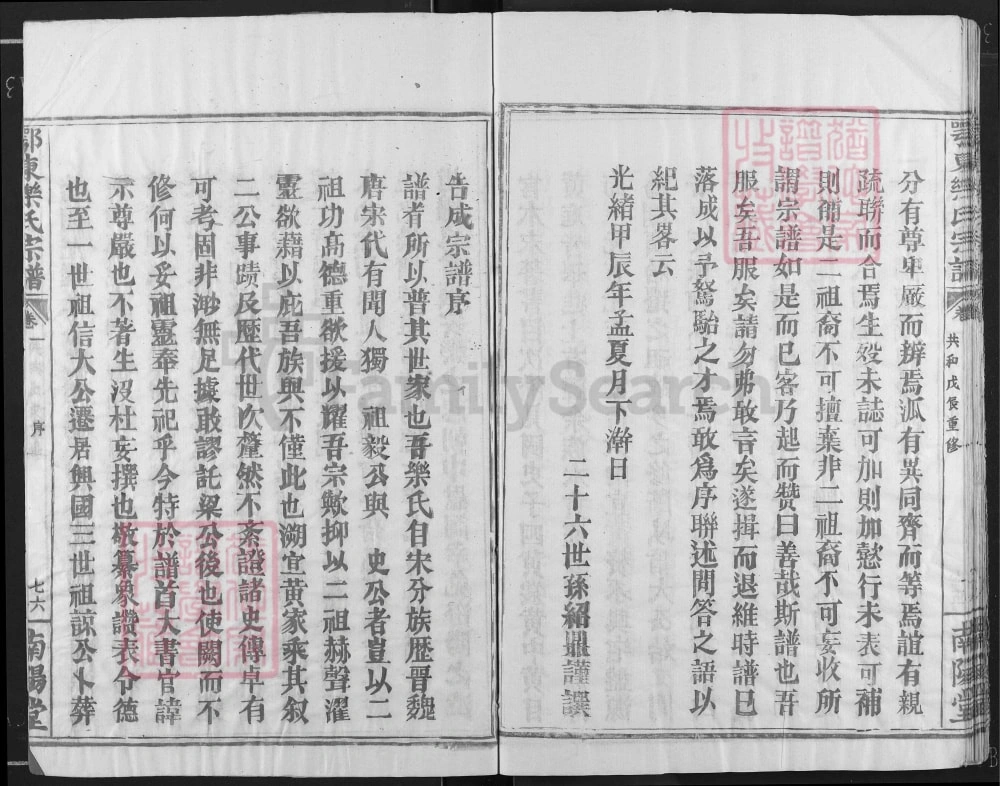 分有尊卑嚴而辨焉派有異同齊而等焉誼有親
疏聯而合焉生歿未誌可加則加懿行未表可補
則備是二祖裔不可擅棄非二祖裔不可妄收所
謂宗譜如是而已客乃起而贊曰善哉斯譜也吾
服矣吾服矣請勿弗敢言矣遂揖而退維時譜已
落成以予駑駘之才焉敢爲序聯述問答之語以
紀其畧云
光緒甲辰年孟夏月下澣日
二十六世孫紹鼎謹譔
共和戊辰重修
南陽堂
告成宗譜序
譜者所以普其世家也吾樂氏自宋分族歷晋魏
唐宋代有聞人獨 祖毅公與 史公者豈以二
祖功高德重欲援以耀吾宗歟抑以二祖赫聲濯
靈欲藉以庇吾族與不僅此也溯宜黃家乘其叙
二公事蹟及歷代世次釐然不紊證諸史傳卓有
可考固非渺無足據敢謬託梁公後也使闕而不
修何以妥祖靈奉先祀乎今特於譜首大書官諱
示尊嚴也不著生沒杜妄撰也敬纂象讚表令德
也至一世祖信大公遷居興國三世祖諒公卜葬
鄂東樂氏宗譜
卷一
序
七六
南陽堂